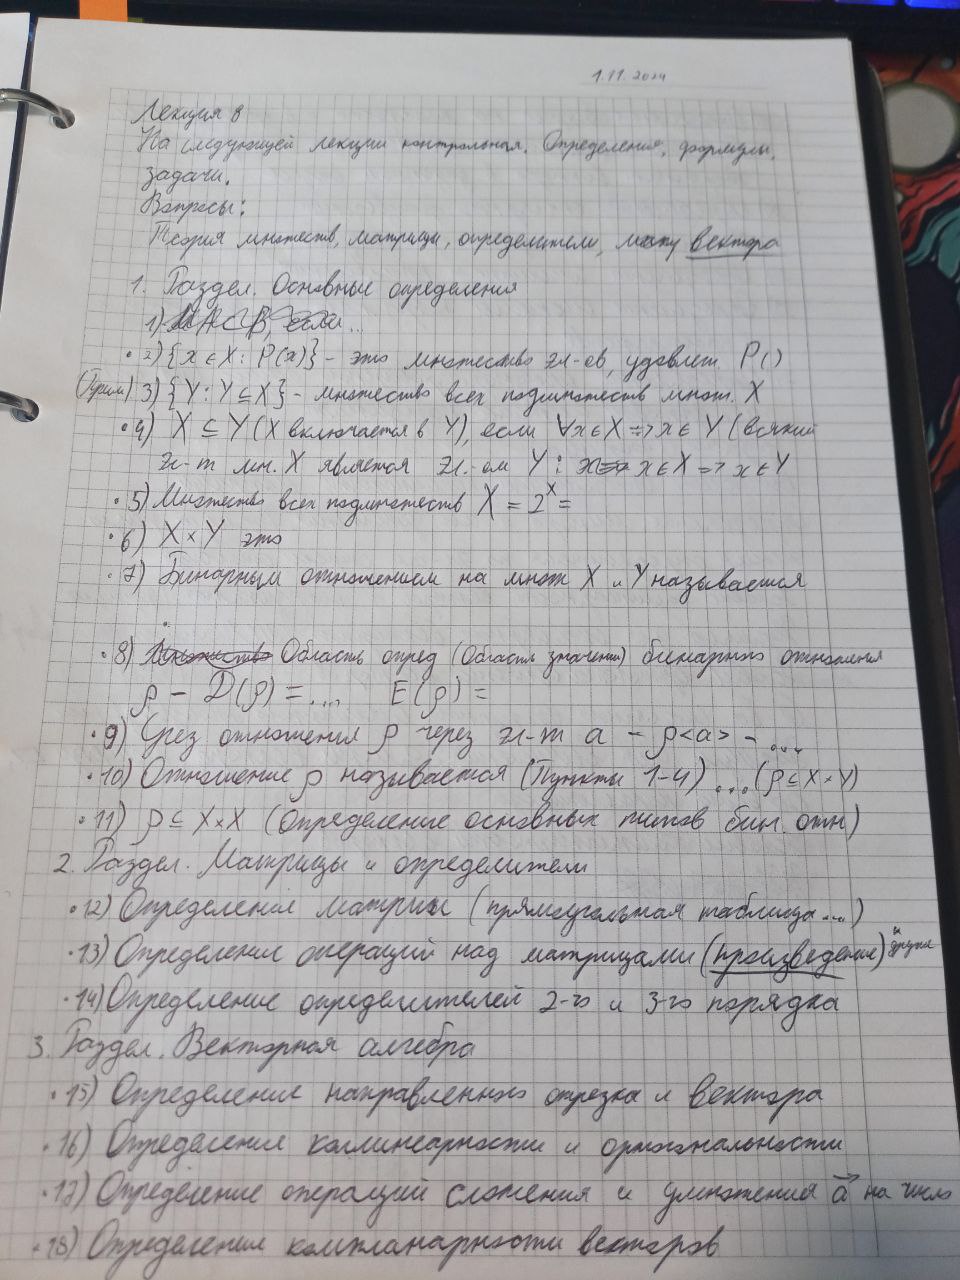 1.11.2024
Лекция 8
На следующей лекции контрольная. Определения, формулы,
задачи.
Вопросы:
Теория множеств, матрицы, определители, вектора
1. Раздел. Основные определения
1) если...
2) {x ∈ X : P(x)} - это множество эл-ов, удовлет. P()
3) {Y : Y ⊆ X} - множество всех подмножеств множ. X
4) X ⊆ Y (X включается в Y), если ∀x∈X => x ∈ Y (всякий
эл-т мн. X является эл.-ом Y : x ∈ X => x ∈ Y
5) Множество всех подмножеств X = 2^X =
6) X × Y это
7) Бинарным отношением на множ X и Y называется
8) Область опред (Область значений) бинарного отношения
ρ - D(ρ) = ... E(ρ) =
9) Срез отношения ρ через эл-т a - ρ<a> - ...
10) Отношение ρ называется (Пункты 1-4) ... (ρ ⊆ X × Y)
11) ρ ⊆ X × X (Определение основных типов бин. отн)
2. Раздел. Матрицы и определители
12) Определение матрицы (прямоугольная таблица...)
13) Определение операций над матрицами (произведение) и другие
14) Определение определителей 2-го и 3-го порядка
3. Раздел. Векторная алгебра
15) Определение направленного отрезка и вектора
16) Определение коллинеарности и ортогональности
17) Определение операций сложения и умножения a⃗ на число
18) Определение компланарности векторов